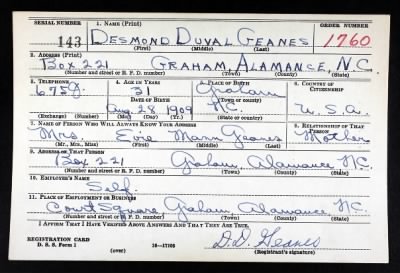 SERIAL NUMBER 1. NAME (Print) ORDER NUMBER
143 DESMOND DUVAL GEANES 1760
(First) (Middle) (Last)
2. ADDRESS (Print)
BOX 221 GRAHAM, ALAMANCE, N.C.
(Number and street or R. F. D. number) (Town) (County) (State)
3. TELEPHONE 4. AGE IN YEARS 5. PLACE OF BIRTH 6. COUNTRY OF CITIZENSHIP
675J. 31 Graham
DATE OF BIRTH (Town or county)
Aug 28 1909 N.C. U.S.A.
(Exchange) (Number) (Mo.) (Day) (Yr.) (State or country)
7. NAME OF PERSON WHO WILL ALWAYS KNOW YOUR ADDRESS 8. RELATIONSHIP OF THAT PERSON
Mrs. Mann Geanes Mother
(Mr., Mrs., Miss) (First) (Middle) (Last)
9. ADDRESS OF THAT PERSON
Box 221 Graham, Alamance, N.C.
(Number and street or R. F. D. number) (Town) (County) (State)
10. EMPLOYER'S NAME
Self
11. PLACE OF EMPLOYMENT OR BUSINESS
Court Square Graham, Alamance, N.C.
(Number and street or R. F. D. number) (Town) (County) (State)
I AFFIRM THAT I HAVE VERIFIED ABOVE ANSWERS AND THAT THEY ARE TRUE.
REGISTRATION CARD
D. S. S. Form 1 (over) 16—17105 D.D. Geanes
(Registrant's signature)